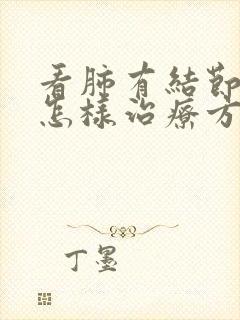 看肺有結節
怎樣治療方
丁墨